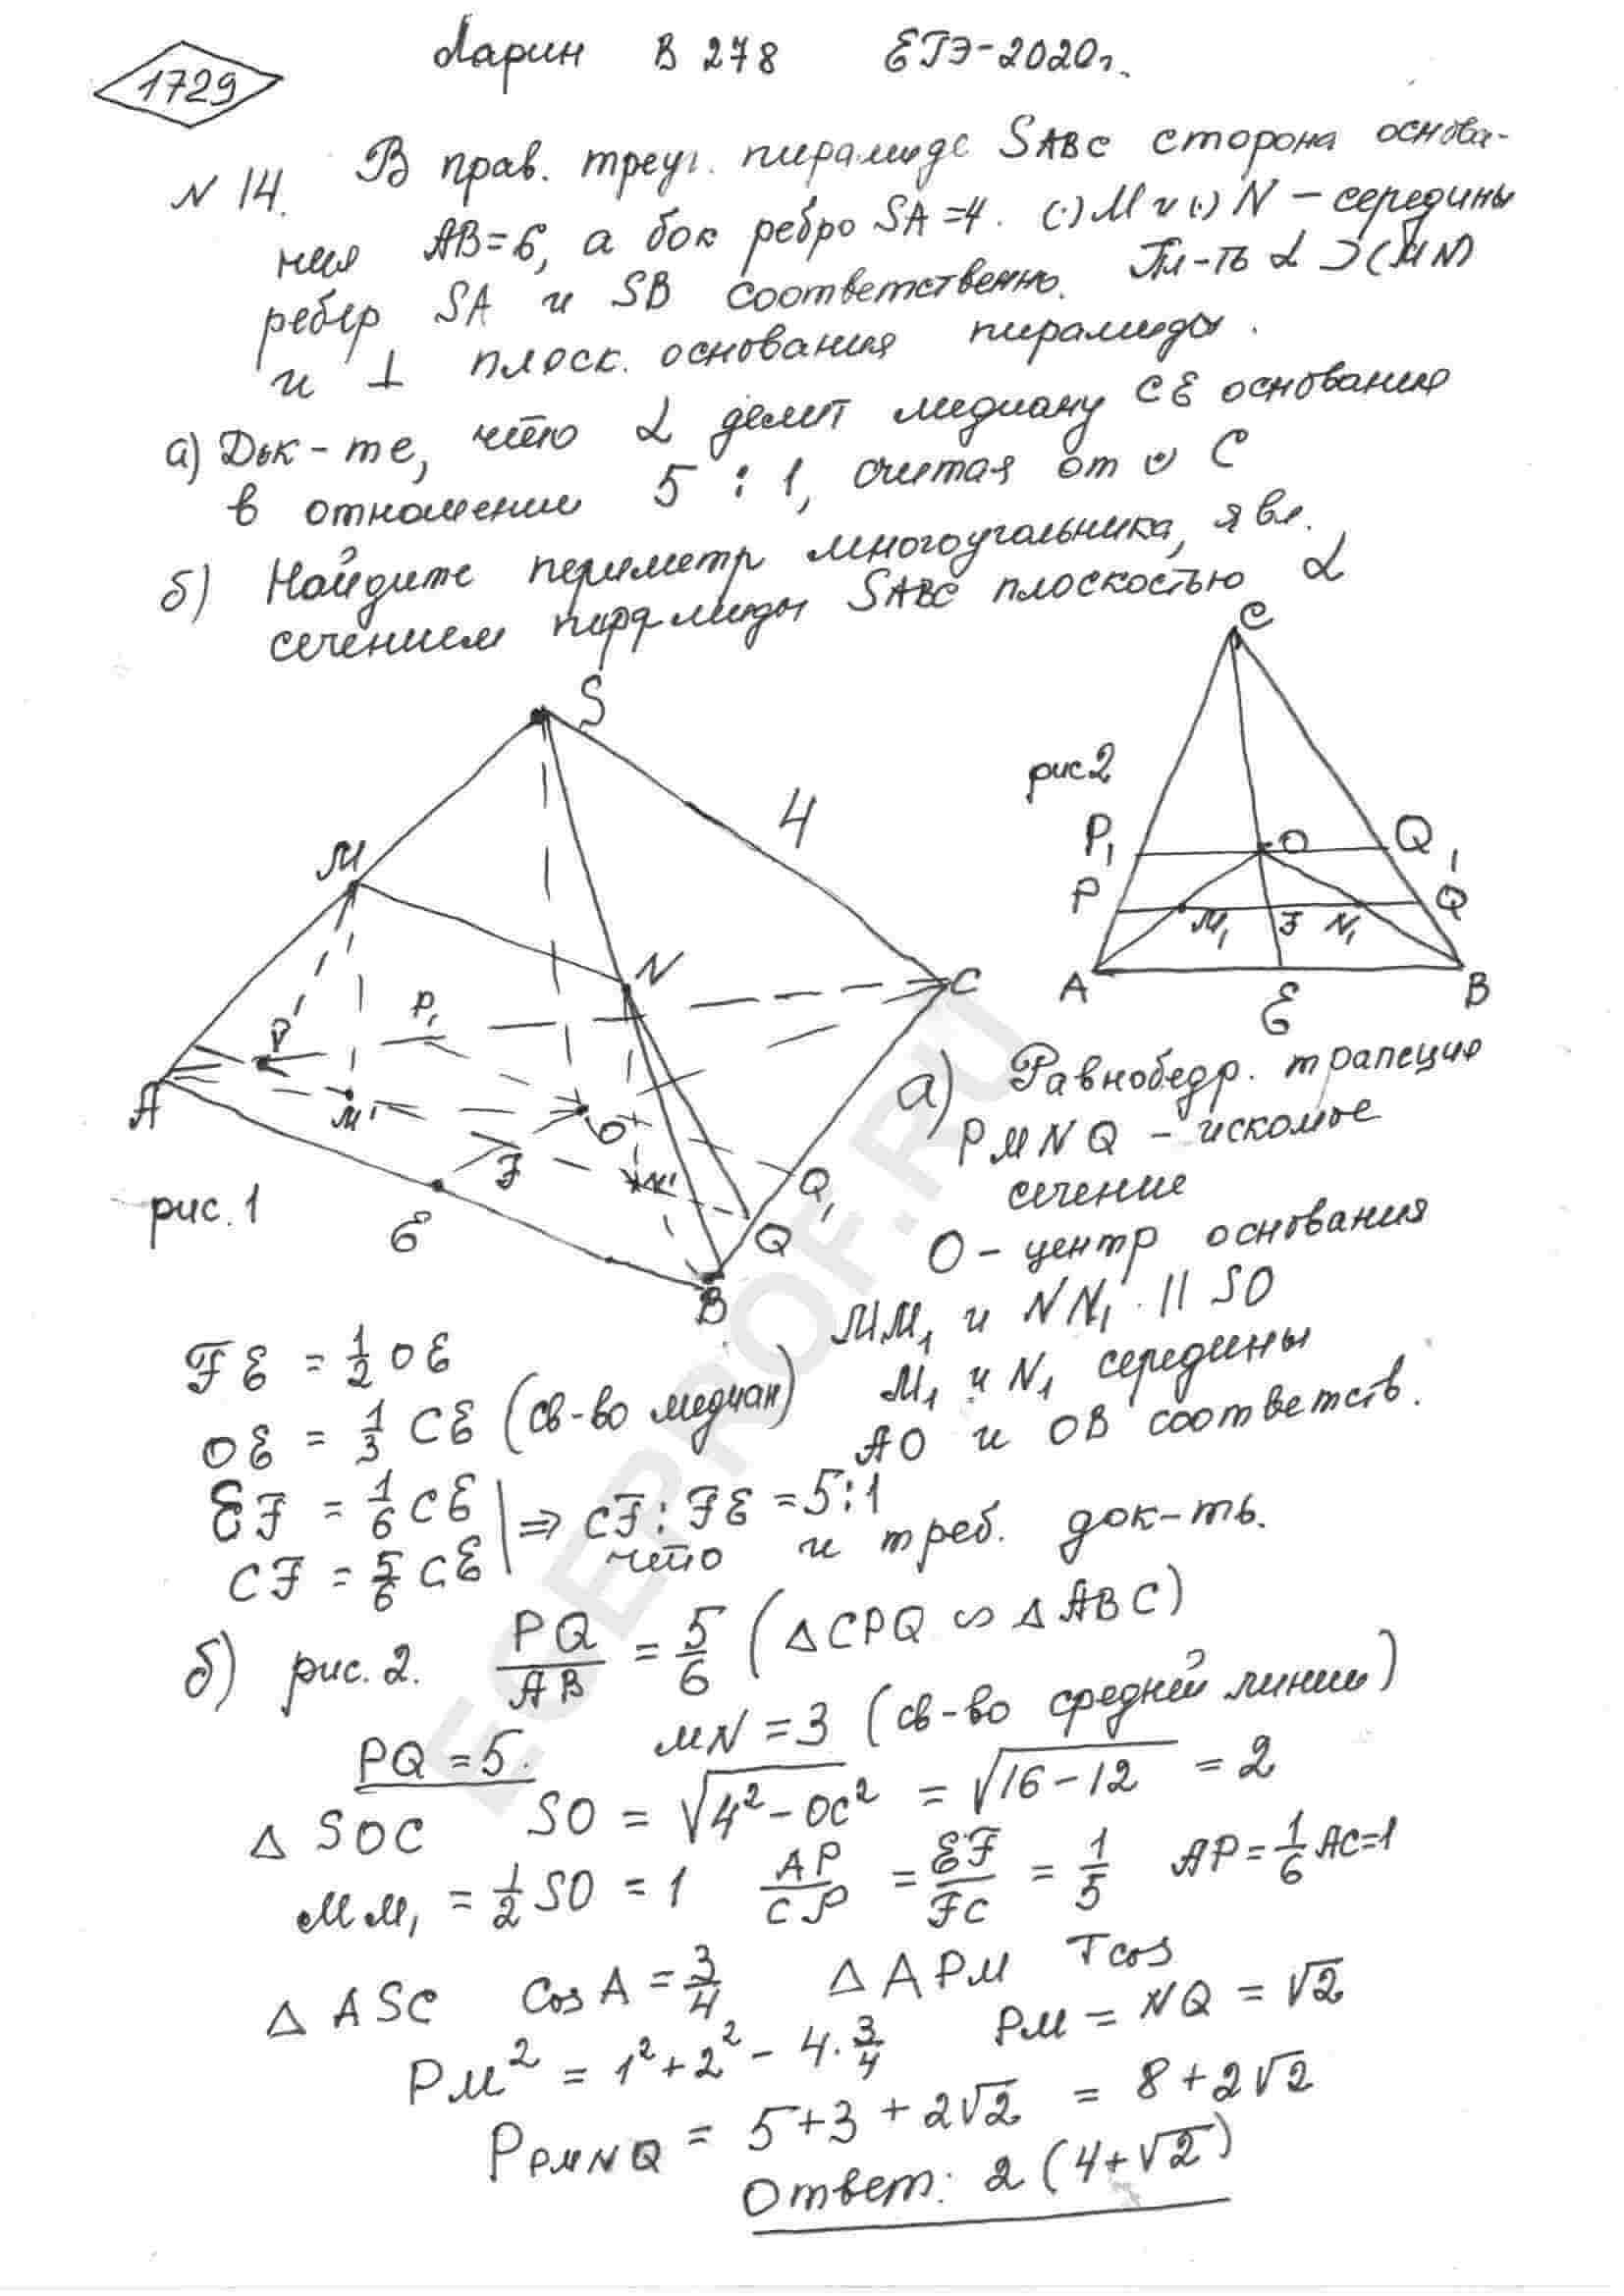 1729
Ларин В 278 ЕГЭ-2020г.
N 14. В прав. треуг. пирамиде SABC сторона основа-
ния AB=6, а бок ребро SA=4. (·) M и (·) N - середины
ребер SA и SB соответственно. Пл-ть α ⊃ (MN)
и ⊥ плоск. основания пирамиды.
а) Док-те, что α делит медиану CE основания
в отношении 5 : 1, считая от C
б) Найдите периметр многоугольника, явл.
сечением пирамиды SABC плоскостью α
S
4
M
N
C
P
P₁
A
M'
O
F
N'
Q₁
Q
E
B
рис. 1
C
рис 2
P₁ O Q₁
P M₁ F N₁ Q
A E B
а) Равнобедр. трапеция
PMNQ - искомое
сечение
O - центр основания
MM₁ и NN₁ || SO
M₁ и N₁ середины
AO и OB соответств.
FE = 1/2 OE
OE = 1/3 CE (св-во медиан)
EF = 1/6 CE
CF = 5/6 CE | ⇒ CF : FE = 5:1
что и треб. док-ть.
б) рис. 2. PQ/AB = 5/6 (△CPQ ∽ △ABC)
PQ = 5. MN = 3 (св-во средней линии)
△ SOC SO = √(4² - OC²) = √(16-12) = 2
MM₁ = 1/2 SO = 1 AP/CP = EF/FC = 1/5 AP = 1/6 AC = 1
△ ASC Cos A = 3/4 △ APM Tcos
PM² = 1² + 2² - 4 · 3/4 PM = NQ = √2
P PMNQ = 5+3+2√2 = 8+2√2
Ответ: 2(4+√2)
EGEPROF.RU